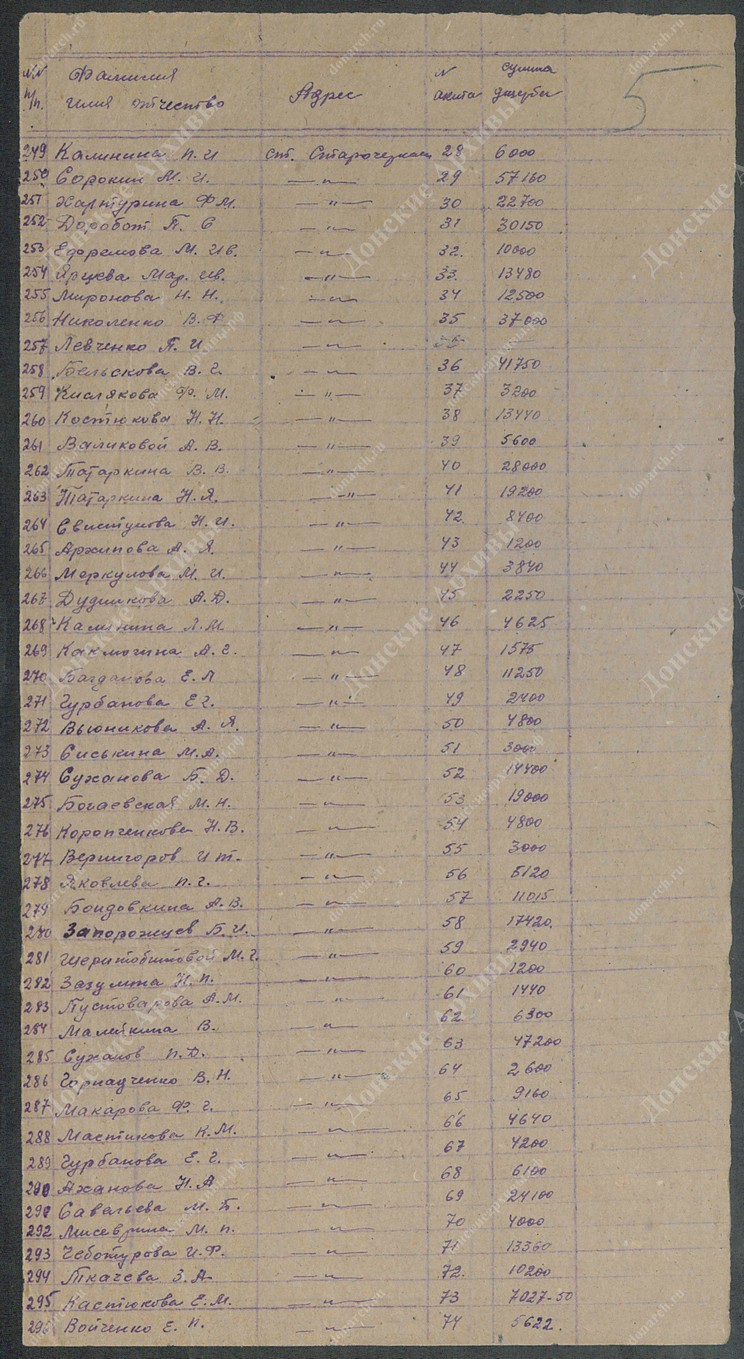 №№ п/п. Фамилия имя отчество Адрес N акта сумма ущерба 5
249 Калинина П. И ст. Старочеркас 28 6000
250 Сорокин М. И. —„— 29 57160
251 Хартурина Ф М. —„— 30 22700
252 Доробот П. С —„— 31 30150
253 Ефремова М. Ив. —„— 32. 10000
254 Ярцева Мар. Ив. —„— 33. 13480
255 Миронова Н. Н. —„— 34 12500
256 Николенко В. Ф —„— 35 37000
257 Левченко П. И —„—
258 Бельскова В. Г. —„— 36 41750
259 Кислякова Ф. М. —„— 37 3200
260 Костюкова Н. Н. —„— 38 13440
261 Валиковой А. В. —„— 39 5600
262 Татаркина В. В. —„— 40 28000
263 Татаркина Н. Я. —„— 41 19200
264 Свистунова Н. И. —„— 42. 8400
265 Архипова А. Я. —„— 43 1200
266 Меркулова М. И. —„— 44 3840
267 Дудникова А. Д. —„— 45 2250
268 Калинина Л. М. —„— 46 4625
269 А. Г. —„— 47 1575
270 Багданова Е. Л —„— 48 11250
271 Гурбанова Е Г. —„— 49 2400
272 Вьюникова А. Я. —„— 50 4800
273 Сиськина М. А. —„— 51 3000
274 Суханова Б. Д. —„— 52 14400
275 Богаевская М. Н. —„— 53 19000
276 Коропченкова Н. В. —„— 54 4800
277 Вернигоров И т. —„— 55 3000
278 Яковлева П. Г. —„— 56 5120
279 Бондовкина А. В. —„— 57 11015
280 Запорожцев Б. И. —„— 58 17420.
281 М. Г. —„— 59 2940
282 Зазулина Н. П. —„— 60 1200
283 Пустоварова А. М. —„— 61 1440
284 Малеткина В. —„— 62 6300
285 Сухалов П. Д. —„— 63 47200
286 В. Н. —„— 64 2600
287 Макарова Ф. Г. —„— 65 9160
288 Мастикова К. М. —„— 66 4640
289 Гурбанова Е. Г. —„— 67 4200
290 Аханова Н. А —„— 68 6100
290 Савельева М. Б. —„— 69 24100
292 М. П. —„— 70 4000
293 Чеботурова И. Ф. —„— 71 13360
294 Ткачева З. А. —„— 72. 10200
295 Кастюкова Е. М. —„— 73 7027-50
296 Войченко Е. П. —„— 74 5622.
Донские Архивы
donarch.ru